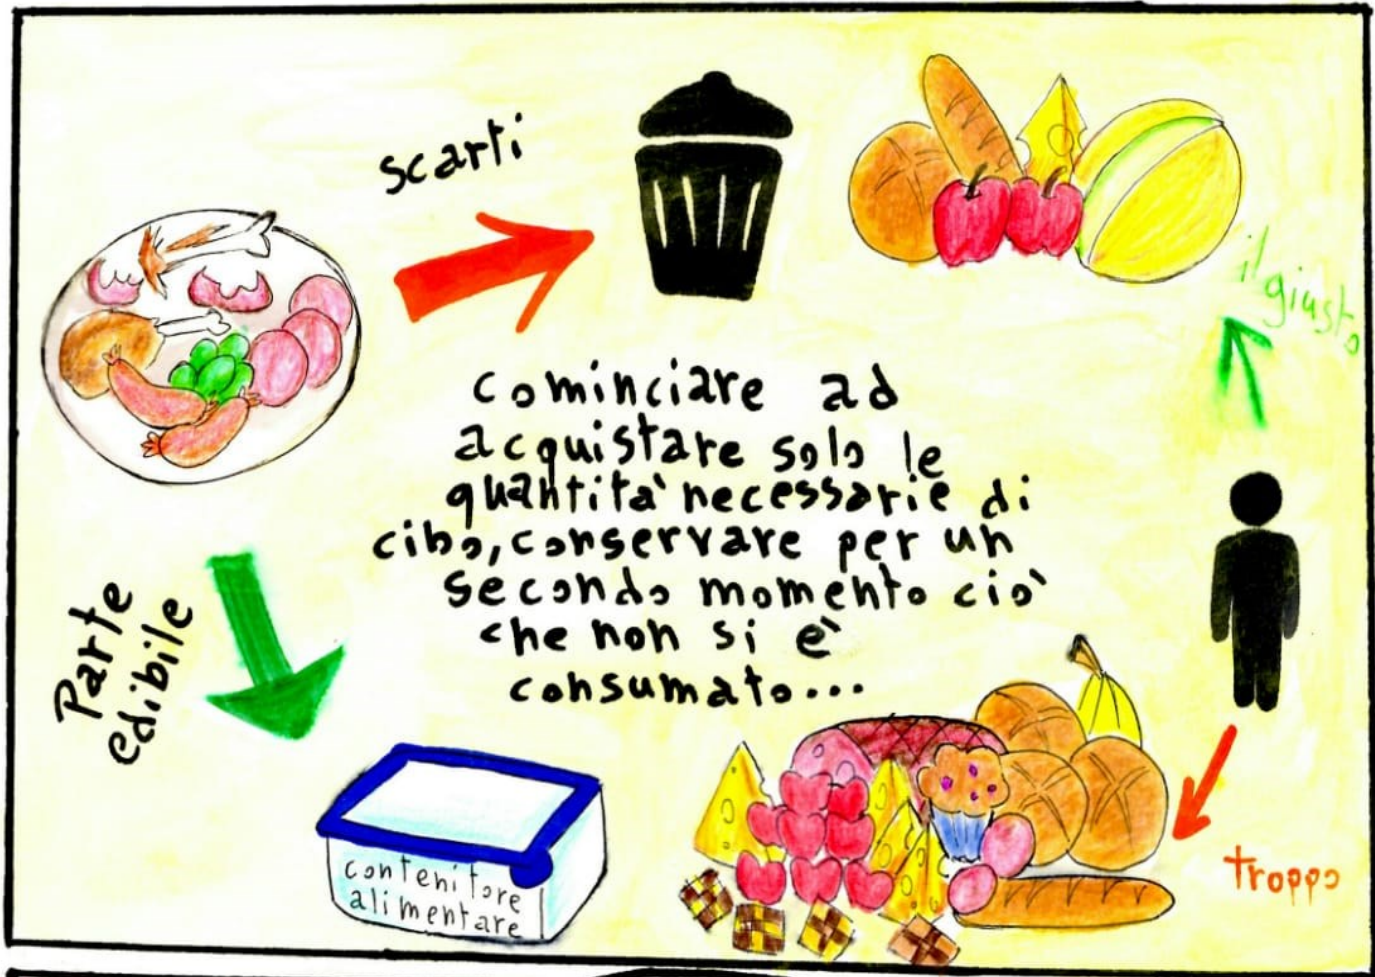 scarti
il giusto
cominciare ad
acquistare solo le
quantita' necessarie di
cibo, conservare per un
secondo momento cio'
che non si e'
consumato...
Parte
edibile
contenitore
alimentare
troppo